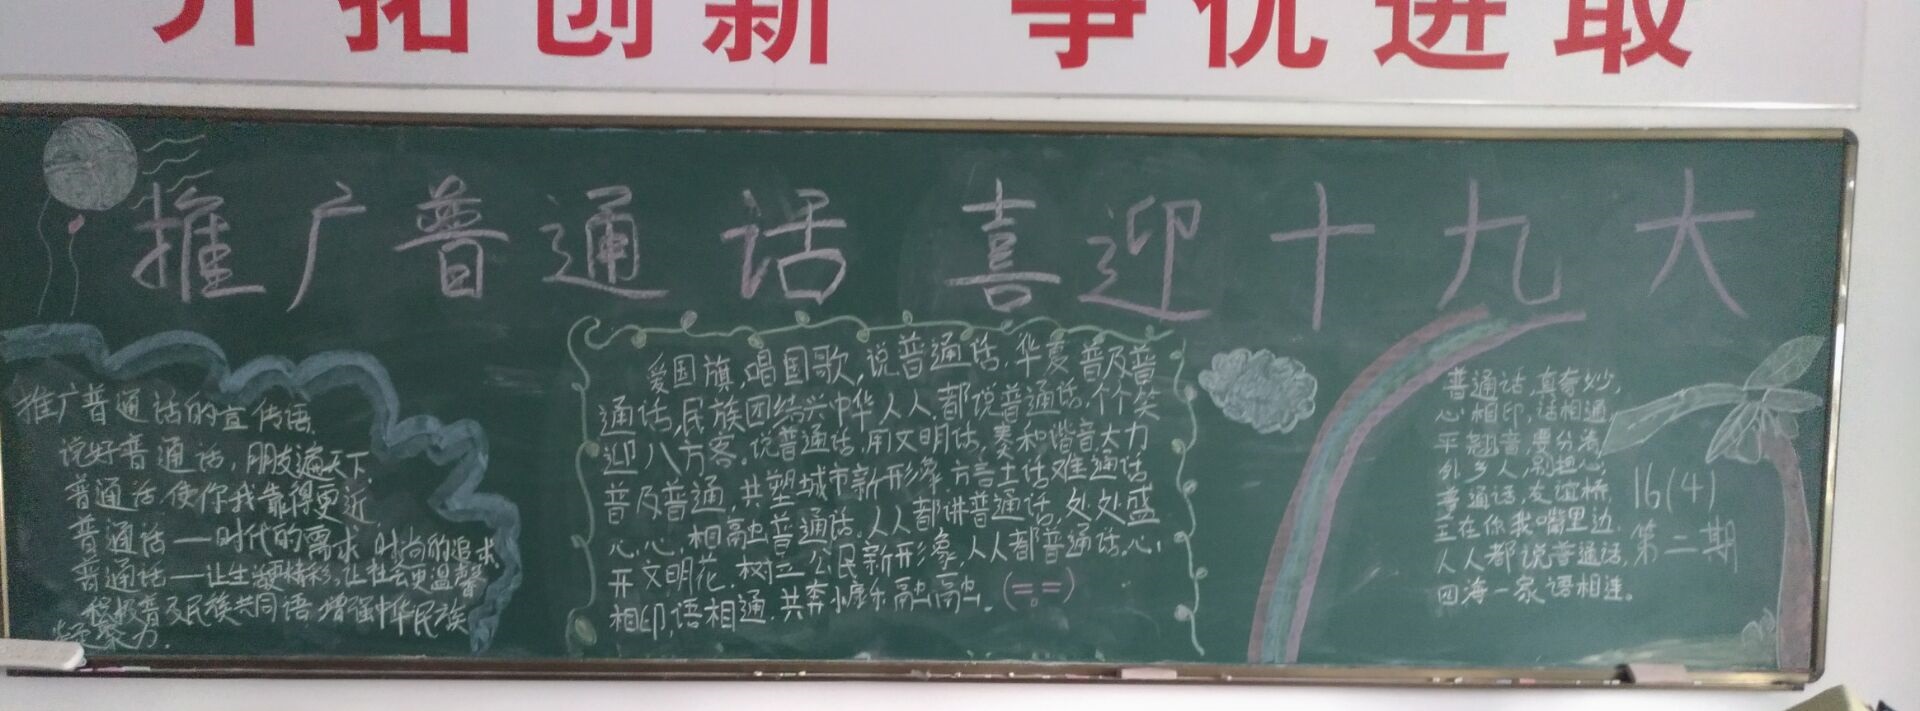 开拓创新 争优进取
推广普通话 喜迎十九大
推广普通话的宣传语.
说好普通话,朋友遍天下.
普通话.使你我靠得更近
普通话——时代的需求.时尚的追求
普通话——让生活更精彩,让社会更温馨
积极普及民族共同语.增强中华民族
凝聚力.
爱国旗,唱国歌,说普通话.华夏普及普
通话,民族团结兴中华.人人都说普通话,个个笑
迎八方客.说普通话,用文明话,奏和谐音.大力
普及普通,共塑城市新形象.方言土话难通话
心,心,相融普通话.人人都讲普通话,处处盛
开文明花.树立公民新形象,人人都普通话,心,
相印,语相通.共奔小康乐融融。(=.=)
普通话,真奇妙,
心相印,话相通,
平翘音,要分清
外乡人,别担心,
普通话,友谊桥,
全在你我嘴里边.
人人都说普通话,
四海一家语相连。
16(4)
第二期